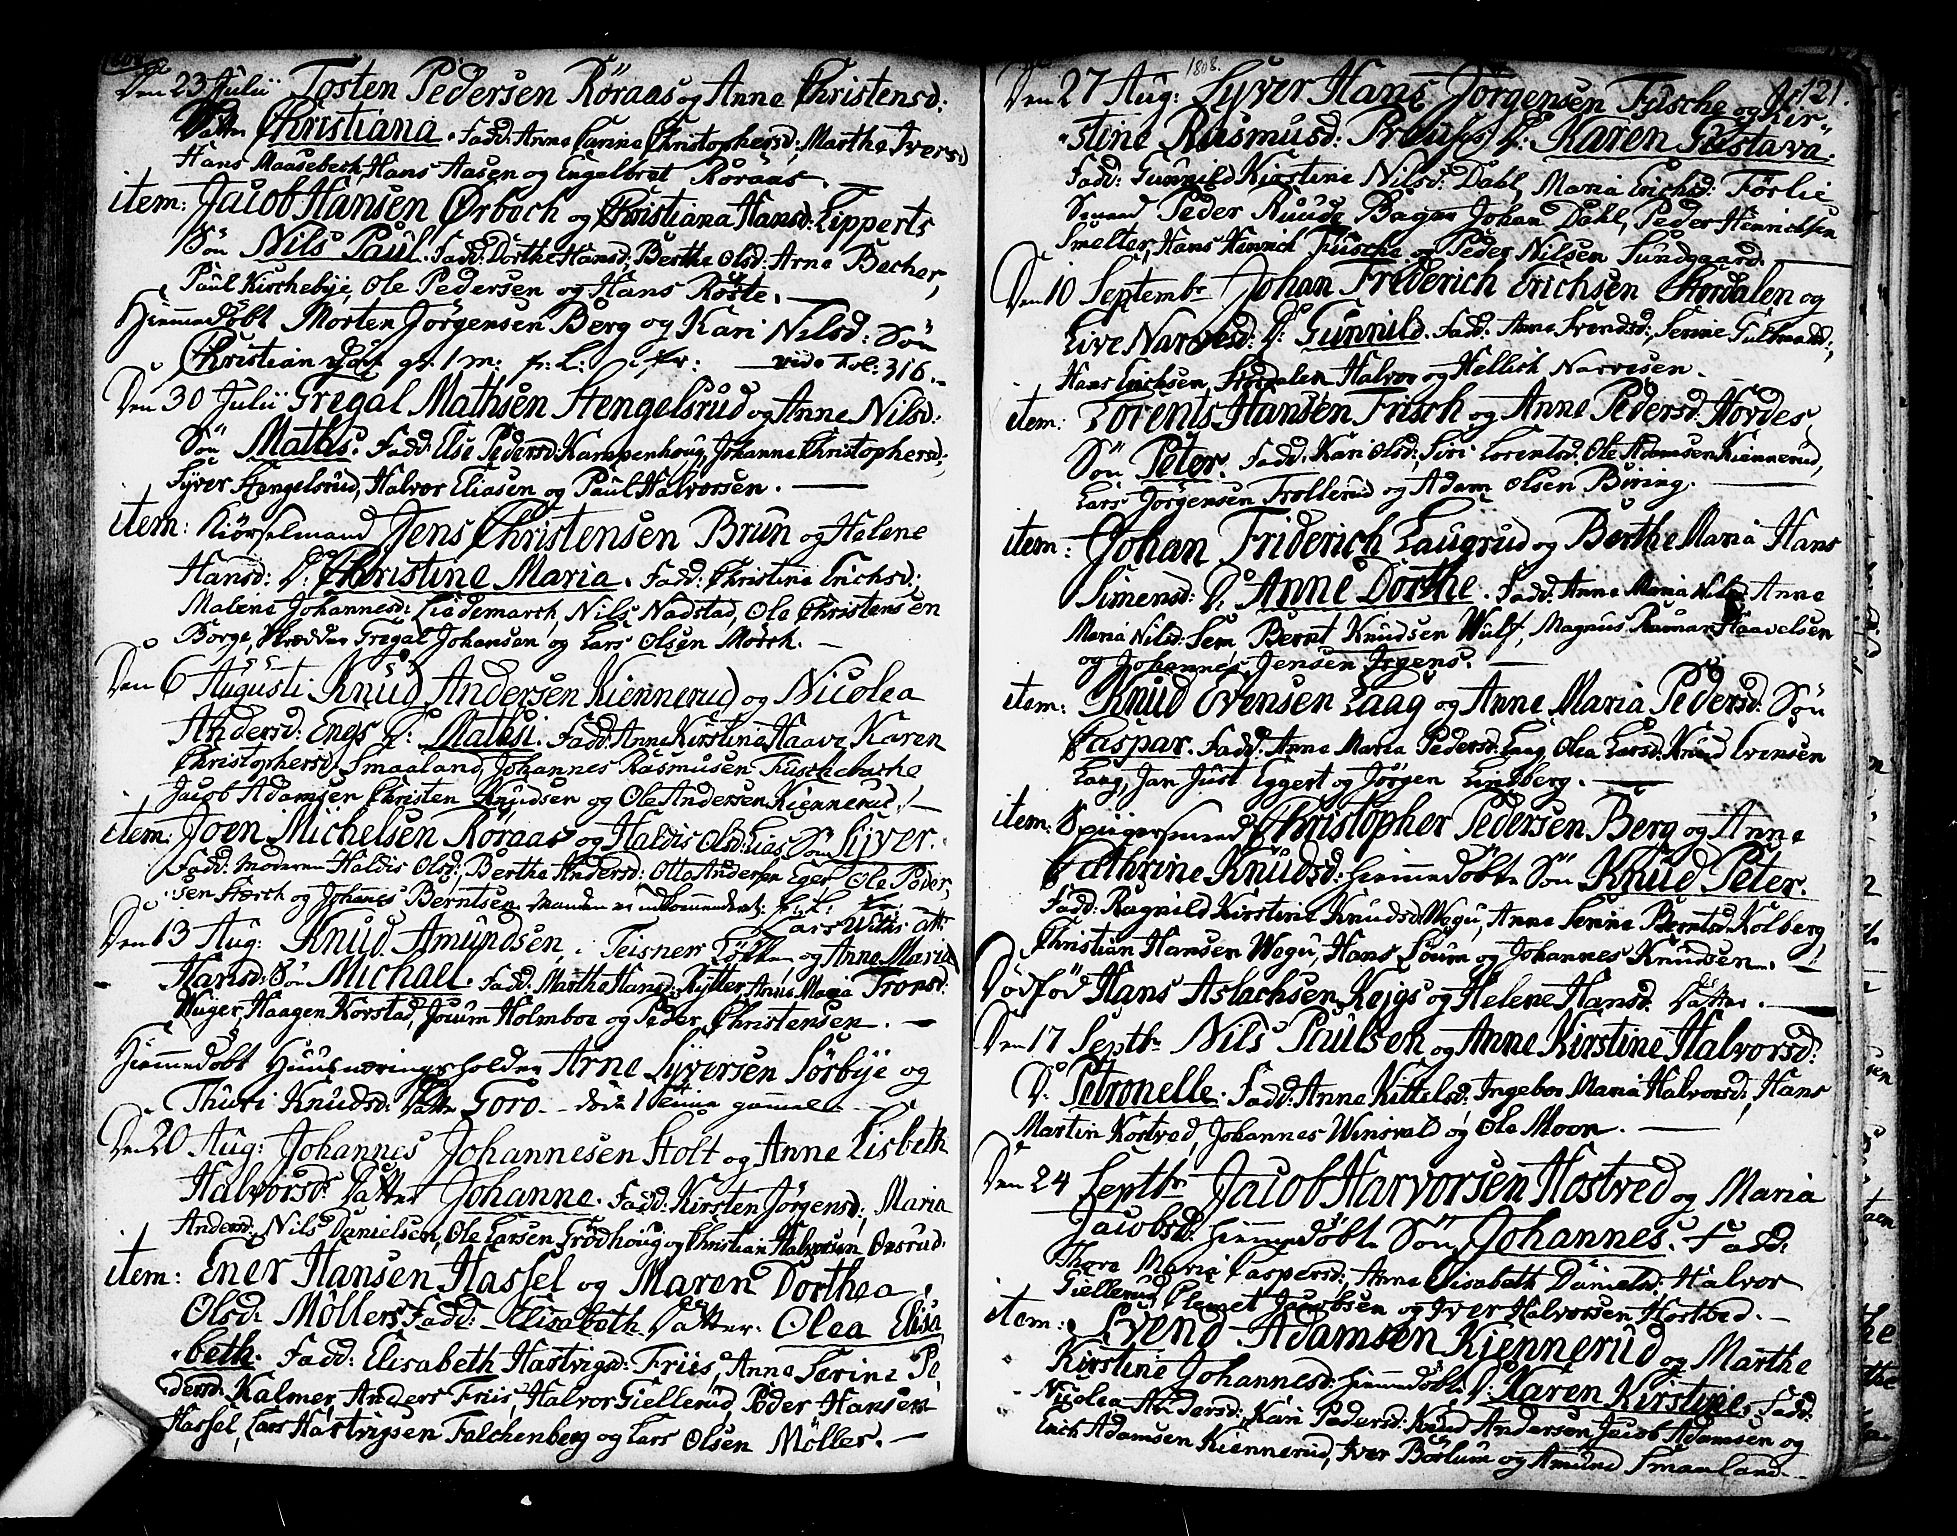 Den 23 Julii Tosten Pedersen Röraas og Anne Christensd:
Datter Christiana. Fadd: Anne Carine Christophersd: Marthe Iversd
Hans Maasebech, Hans Aasen og Engelbret Röraas.
item: Jacob Hansen Ørbech og Christiana Hansd: Lipperts
Sön Nils Paul. Fadd: Dorthe Hansd: Berthe Olsd: Arne Becher,
Paul Kirchebye, Ole Pedersen og Hans Röste.
Hiemmedöbt Morten Jörgensen Berg og Kari Nilsd: Sön
Christian gl: 1 m: fr: L: vide Fol: 316.
Den 30 Julii Gregal Mathsen Stengelsrud og Anne Nilsd:
Sön Mathis. Fadd: Else Pedersd: Kampenhoug, Johanne Christophersd:,
Syver Stengelsrud, Halvor Eliasen og Paul Halvorsen.
item: Kiörselmand Jens Christensen Brun og Helene
Hansd: D: Christine Maria. Fadd: Christine Erichsd:
Malene Johannesd: Liademarch, Nils Nadstad, Ole Christensen
Borge, Skredder Gregal Johansen og Lars Olsen Morch.
Den 6 Augusti Knud Andersen Kiennerud og Nicolea
Andersd: Engs D: Mathsi. Fadd: Anne Kirstine Haave, Karen
Christophersd: Smaaland, Johannes Rasmusen Fuschebache
Jacob Adamsen Christen Knudsen og Ole Andersen Kiennerud.
item: Joen Michelsen Röraas og Haldis Olsd: Lias Sön Syver.
Fadd: Moderen Haldis Olsd:, Berthe Andersd: Otto Andersen Eger Ole Peder,
sen Hærch og Johanes Berntsen. Manden ei indkommandert: fr: L:
Lars Wilds att:
Den 13 Aug: Knud Amundsen, Teisner Lökken og Anne Maria
Hansd: Sön Michael. Fadd: Marthe Hansd: Rytter, Anne Maria Tronsd:
Wüger, Haagen Korstad, Joeum Holmboe og Peder Christensen.
Hiemmedöbt Huusnæringsholder Arne Syversen Sörbye og
Thuri Knudsd: Datter Goro. döde 1 Time gammel.
Den 20 Aug: Johannes Johannesen Stolt og Anne Lisbeth
Halvorsd: Datter Johanne. Fadd: Kirsten Jörgensd:, Maria
Andersd: Nils Danielsen, Ole Larsen Frödhoug og Christian Halvorsen Onsrud.
item: Ener Hansen Hassel og Maren Dorthea
Olsd: Möllers Fadd: Elisabeth Datter: Olea Elisa
beth. Fadd: Elisabeth Hartvigsd: Friis, Anne Serine Pe
dersd: Kalmer, Anders Friis, Halvor Giellerud, Peder Hansen
Hassel, Lars Hartvigsen Falchenberg og Lars Olsen Möller.
1808. 121.
Den 27 Aug: Syver Hans Jörgensen Fusche og Kir-
stine Rasmusd: D: Karen Gustava.
Fadd: Gunnild Kirstine Nilsd: Dahl, Maria Erichsd: Förlie
Smand Peder Ruude Bager Johan Dahl, Peder Henrichsen
Smelter, Hans Henrich Fusche og Peder Nilsen Sundgaard.
Den 10 Septembr Johan Frederich Erichsen Stordalen og
Live Narvesd: D: Gunnild. Fadd: Anne Svendsd: Senine Gulbrandsd:,
Hans Erichsen, Stordalen Halvor og Hellich Narvesen.
item: Lorents Hansen Frisch og Anne Pedersd: Hordes
Sön Peter. Fadd: Kari Olsd:, Siri Lorentsd: Ole Adamsen Kiennerud,
Lars Jörgensen Trollerud og Adam Olsen Biring.
item: Johan Friderich Laugrud og Berthe Maria Hans
Simensd: D: Anne Dorthe. Fadd: Anne Maria Nilsd: Anne
Maria Nilsd: Sem, Bernt Knudsen Wulf, Magnus Ramar Haavelsen
og Johannes Jensen Irgens.
item: Knud Evensen Laag og Anne Maria Pedersd: Sön
Caspar. Fadd: Anne Maria Pedersd: Laag, Olea Larsd: Knud Evensen
Laag, Jan Just Eggert og Jörgen Lindberg.
item: Spigersmed Christopher Pedersen Berg og Anne
Cathrine Knudsd: hiemmedöbte Sön Knud Peter.
Fadd: Ragnild Kirstine Knudsd: Wegu, Anne Serine Berntsd: Kolberg,
Christian Hansen Wegu, Hans Soum og Johannes Knudsen.
Dödföd Hans Aslachsen Rejgs og Helene Hansd: Datter.
Den 17 Septbr Nils Paulsen og Anne Kirstine Halvorsd:
D: Petronelle. Fadd: Anne Kittelsd: Ingebor Maria Halvorsd:, Hans
Martin Kostved, Johannes Winsvald og Ole Moon.
Den 24 Septbr Jacob Harvorsen Hostved og Maria
Jacobsd: hiemmedöbte Sön Johannes. Fadd:
Thore Maria Caspersd:, Anne Elisabeth Danield:, Halvor
Giellerud, Clemet Jacobsen og Iver Halvorsen Hostved.
item: Svend Adamsen Kiennerud og Marthe
Kirstine Johannesd: hiemmedöbte D: Karen Kirstine. Fadd:
Nicolea Andersd:, Kari Pedersd: Knud Andersen, Jacob Adamsen og
Erich Adamsen Kiennerud, Iver Börlum og Amund Smaaland.